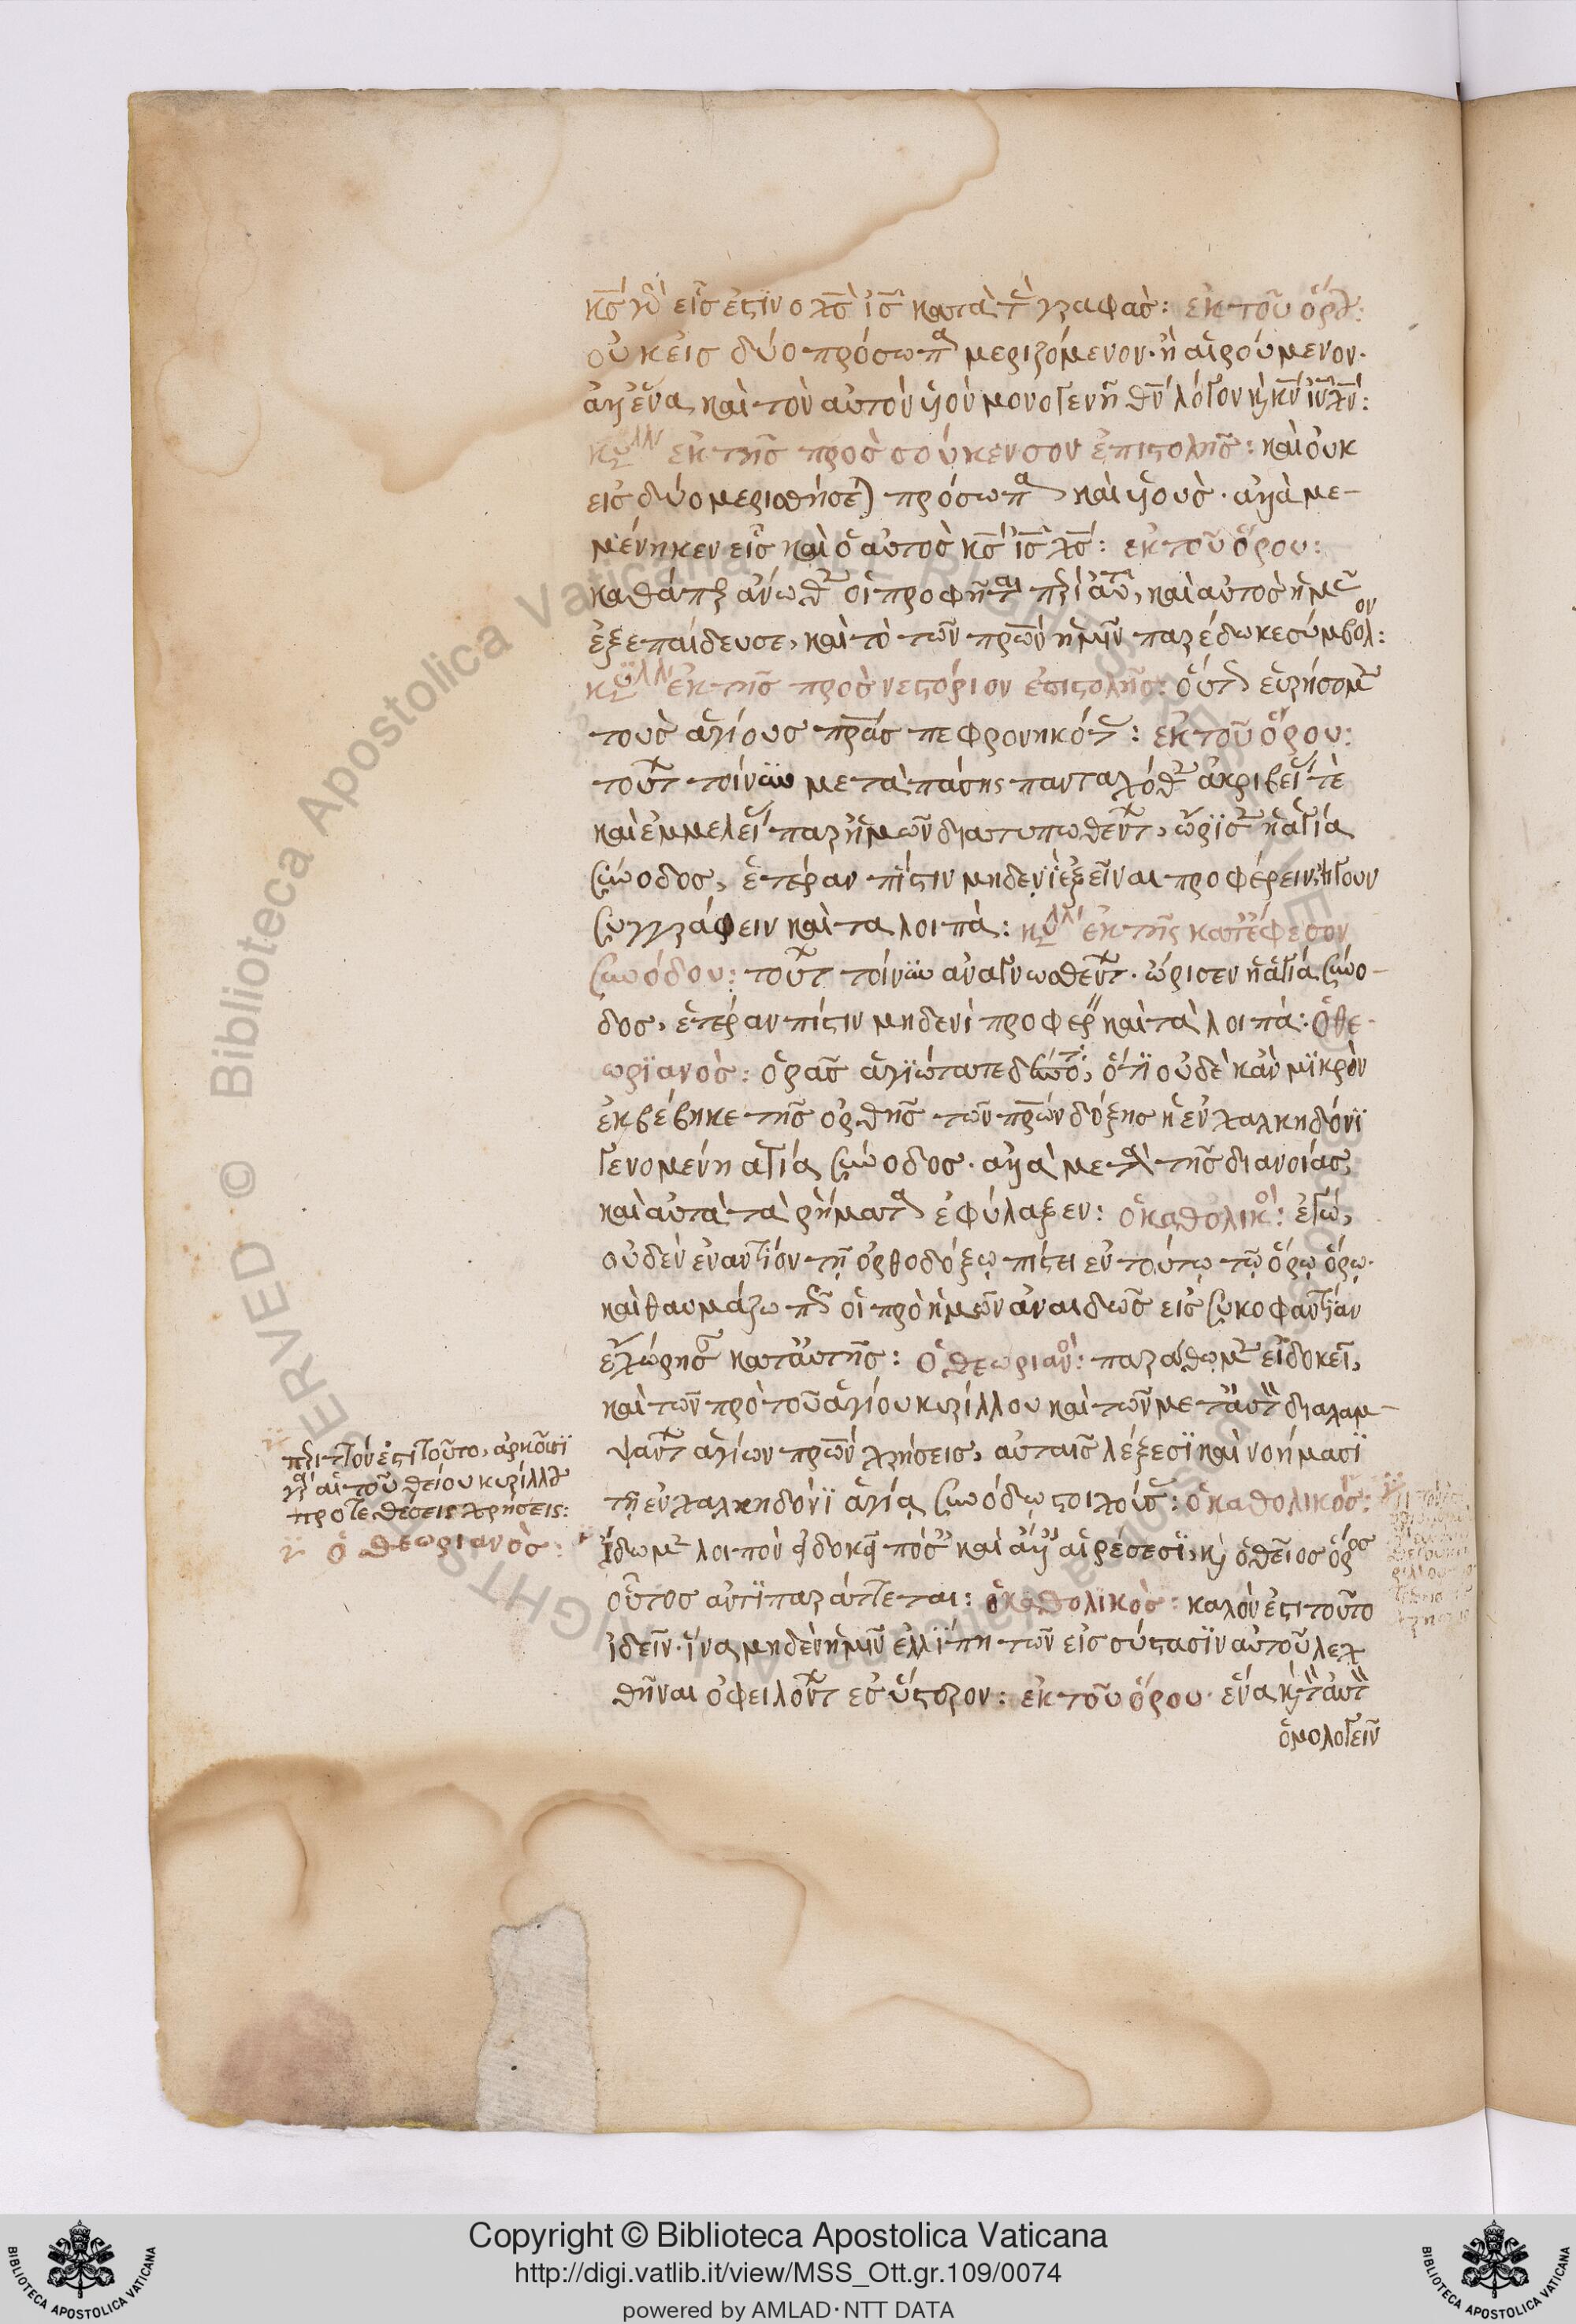 κς γὰρ εἷς ἐστὶν ο χς ις κατὰ τὰς γραφάς: ἐκ τοῦ ὅρου:
οὐκ εἰς δύο πρόσωπα μεριζόμενον· ἢ αἱρούμενον·
ἀλλ' ἕνα καὶ τὸν αὐτὸν υἱὸν μονογενῆ θν λόγον καὶ κν ιν χν:
κυριλλ ἐκ τῆς πρὸς σούκενσον ἐπιστολῆς: καὶ οὐκ
εἰς δύο μερισθήσεται πρόσωπα καὶ υἱούς· ἀλλὰ με-
μένηκεν εἷς καὶ ὁ αὐτὸς κς ις χς: ἐκ τοῦ ὅρου:
καθάπερ ἄνωθεν οἱ προφῆται περὶ αὐτοῦ, καὶ αὐτὸς ἡμᾶς
ἐξεπαίδευσε, καὶ τὸ τῶν πρων ἡμῖν παρέδωκε σύμβολον:
κυριλλ ἐκ τῆς πρὸς νεστόριον ἐπιστολῆς: οὕτω εὑρήσομεν
τοὺς ἁγίους πρας πεφρονηκότας: ἐκ τοῦ ὅρου:
τούτων τοίνυν μετὰ πάσης πανταχόθεν ἀκριβείας τὲ
καὶ ἐμμελείας παρ' ἡμῶν διατυπωθέντων, ὥρισεν ἡ ἁγία
σύνοδος, ἑτέραν πίστιν μηδενὶ ἐξεῖναι προφέρειν, ἤγουν
συγγράφειν καὶ τα λοιπά: κυριλλ ἐκ τῆς κατ' ἔφεσον
συνόδου: τούτων τοίνυν ἀναγνωσθέντων· ὥρισεν ἡ ἁγία σύνο-
δος, ἑτέραν πίστιν μηδενὶ προφέρειν καὶ τὰ λοιπά: Ὁ θε-
ωριανὸς: ὁρᾶς ἁγιώτατε δέσποτα, ὅτι οὐδὲ κἂν μικρὸν
ἐκβέβηκε τῆς ορθῆς τῶν πρων δόξης ἡ ἐν χαλκηδόνι
γενομένη αγία σύνοδος· ἀλλὰ μετὰ τῆς διανοίας,
καὶ αὐτὰ τὰ ῥήματα ἐφύλαξεν: ὁ καθολικὸς: ἐγώ,
οὐδὲν ἐναντίον τῇ ὀρθοδόξῳ πίστει ἐν τούτῳ τῷ ὅρῳ ὁρῶ·
καὶ θαυμάζω πῶς οἱ πρὸ ἡμῶν ἀναιδῶς εἰς συκοφαντίαν
ἐχώρησαν κατ' αὐτῆς: ὁ θεωριανὸς: παραθῶμεν εἰ δοκεῖ,
καὶ τῶν πρὸ τοῦ ἁγίου κυρίλλου καὶ τῶν μετ' αὐτὸν διαλαμ-
ψάντων ἁγίων πρων χρήσεις, αὐταῖς λέξεσι καὶ νοήμασι
τῇ ἐν χαλκηδόνι ἁγίᾳ συνόδῳ στοιχούσας: ὁ καθολικός:
ἴδωμεν λοιπὸν εἰ δοκεῖ πόσαις καὶ ἄλλαις αἱρέσεσι, καὶ ὁ θεῖος ὅρος
οὗτος ἀντιπαρατάττεται: ὁ καθολικὸς: καλὸν ἐστὶ τοῦτο
ἰδεῖν· ἵνα μηδὲν ἡμῖν ἐλλίπη τῶν εἰς σύστασιν αὐτοῦ λεχ
θῆναι ὀφειλόντων ἐσύστερον: ἐκ τοῦ ὅρου· ἕνα καὶ τὸν αὐτὸν
ὁμολογεῖν
περιττόν ἐστι τοῦτο, ἀρκοῦσι
γὰρ αἱ τοῦ θείου κυρίλλου
προτεθεῖσαι χρήσεις:
ὁ θεωριανὸς:
Copyright © Biblioteca Apostolica Vaticana
http://digi.vatlib.it/view/MSS_Ott.gr.109/0074
powered by AMLAD·NTT DATA